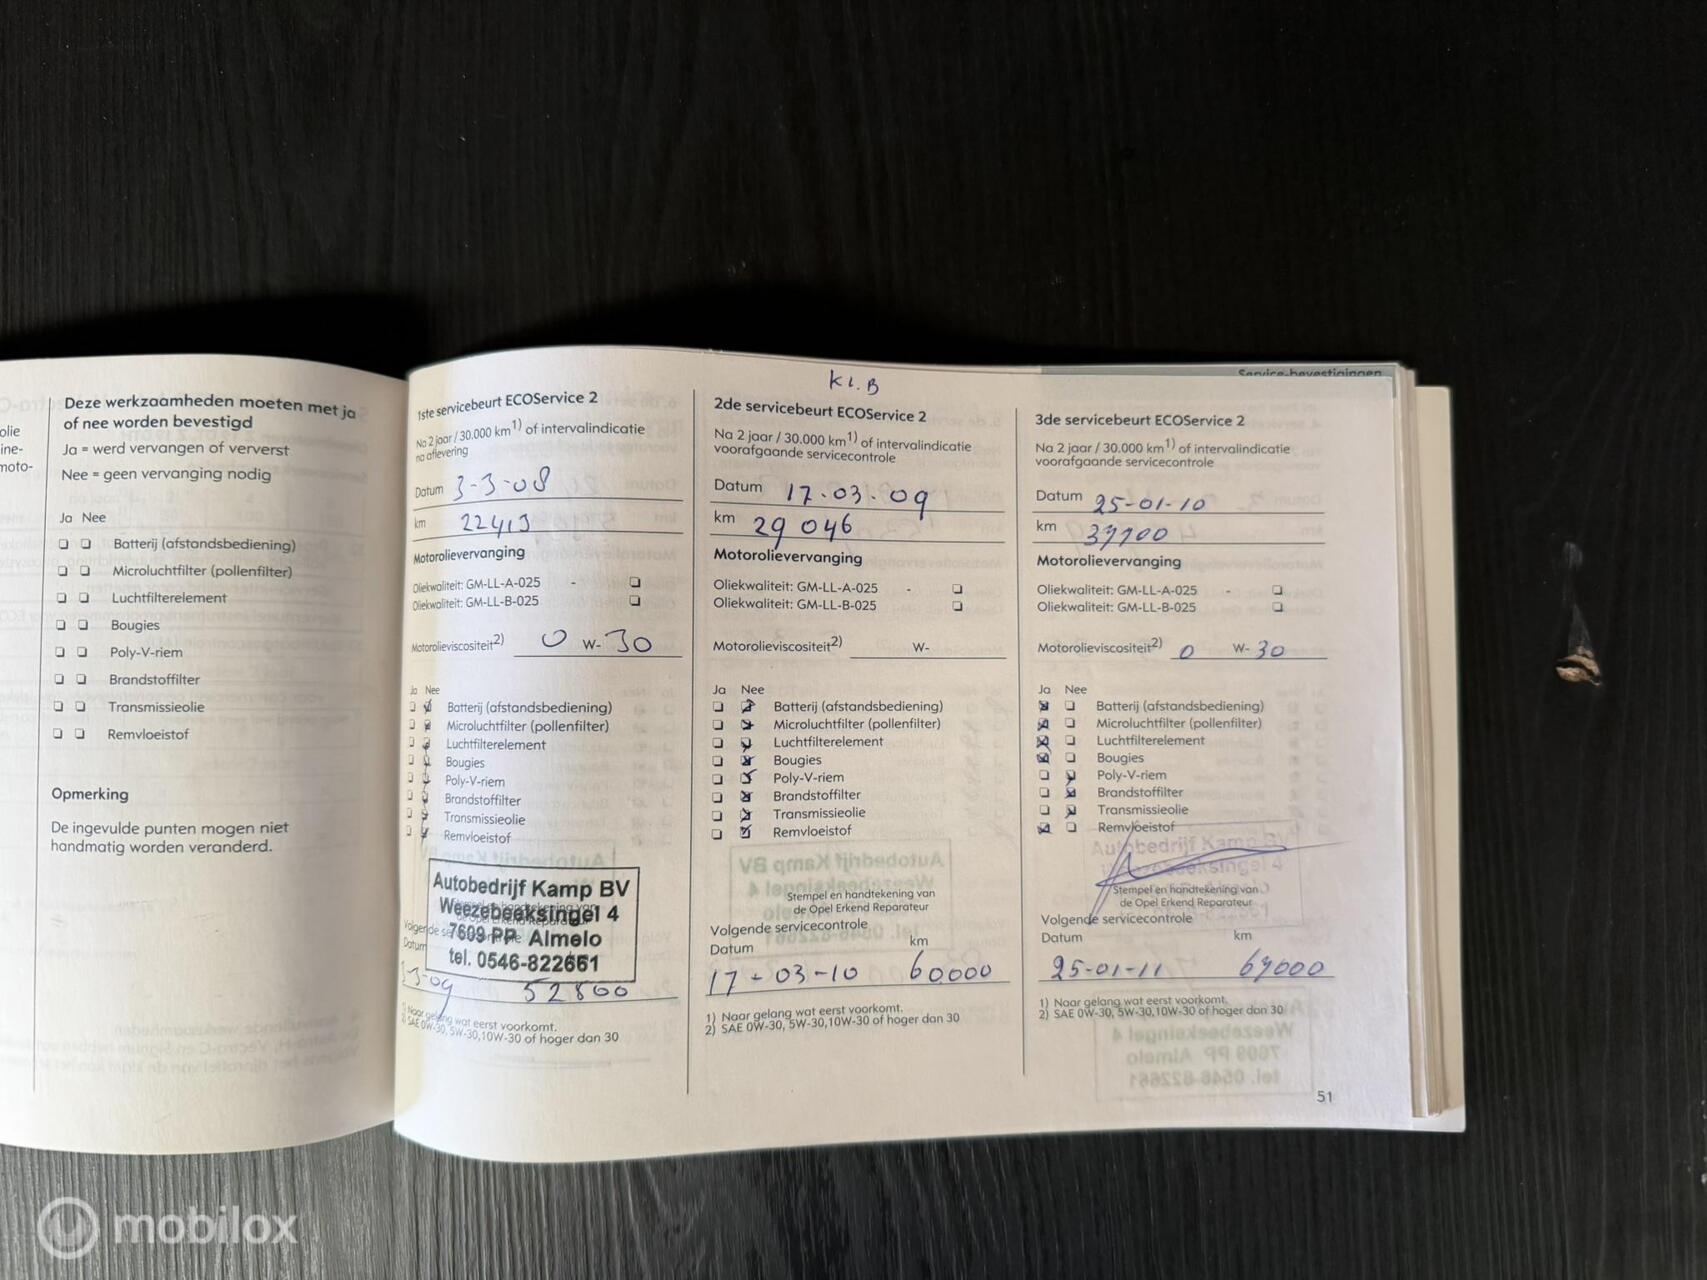 Service-bevestigingen
olie
ine-
moto-
Deze werkzaamheden moeten met ja
of nee worden bevestigd
Ja = werd vervangen of ververst
Nee = geen vervanging nodig
Ja Nee
Batterij (afstandsbediening)
Microluchtfilter (pollenfilter)
Luchtfilterelement
Bougies
Poly-V-riem
Brandstoffilter
Transmissieolie
Remvloeistof
Opmerking
De ingevulde punten mogen niet
handmatig worden veranderd.
1ste servicebeurt ECOService 2
Na 2 jaar / 30.000 km1) of intervalindicatie
na aflevering
Datum 3-3-08
km 22413
Motorolievervanging
Oliekwaliteit: GM-LL-A-025 -
Oliekwaliteit: GM-LL-B-025
Motorolieviscositeit2) 0 W- 30
Ja Nee
Batterij (afstandsbediening)
Microluchtfilter (pollenfilter)
Luchtfilterelement
Bougies
Poly-V-riem
Brandstoffilter
Transmissieolie
Remvloeistof
Autobedrijf Kamp BV
Weezebeeksingel 4
7609 PP Almelo
tel. 0546-822661
Datum
3-3-09 52800
1) Naar gelang wat eerst voorkomt.
2) SAE 0W-30, 5W-30,10W-30 of hoger dan 30
K1.B
2de servicebeurt ECOService 2
Na 2 jaar / 30.000 km1) of intervalindicatie
voorafgaande servicecontrole
Datum 17.03.09
km 29 046
Motorolievervanging
Oliekwaliteit: GM-LL-A-025 -
Oliekwaliteit: GM-LL-B-025
Motorolieviscositeit2) W-
Ja Nee
Batterij (afstandsbediening)
Microluchtfilter (pollenfilter)
Luchtfilterelement
Bougies
Poly-V-riem
Brandstoffilter
Transmissieolie
Remvloeistof
Stempel en handtekening van
de Opel Erkend Reparateur
Volgende servicecontrole
Datum km
17-03-10 60000
1) Naar gelang wat eerst voorkomt.
2) SAE 0W-30, 5W-30,10W-30 of hoger dan 30
3de servicebeurt ECOService 2
Na 2 jaar / 30.000 km1) of intervalindicatie
voorafgaande servicecontrole
Datum 25-01-10
km
Motorolievervanging
Oliekwaliteit: GM-LL-A-025 -
Oliekwaliteit: GM-LL-B-025
Motorolieviscositeit2) 0 W- 30
Ja Nee
Batterij (afstandsbediening)
Microluchtfilter (pollenfilter)
Luchtfilterelement
Bougies
Poly-V-riem
Brandstoffilter
Transmissieolie
Remvloeistof
Autobedrijf Kamp BV
Weezebeeksingel 4
Stempel en handtekening van
de Opel Erkend Reparateur
Volgende servicecontrole
Datum km
25-01-11 67000
1) Naar gelang wat eerst voorkomt.
2) SAE 0W-30, 5W-30,10W-30 of hoger dan 30
51
mobilox